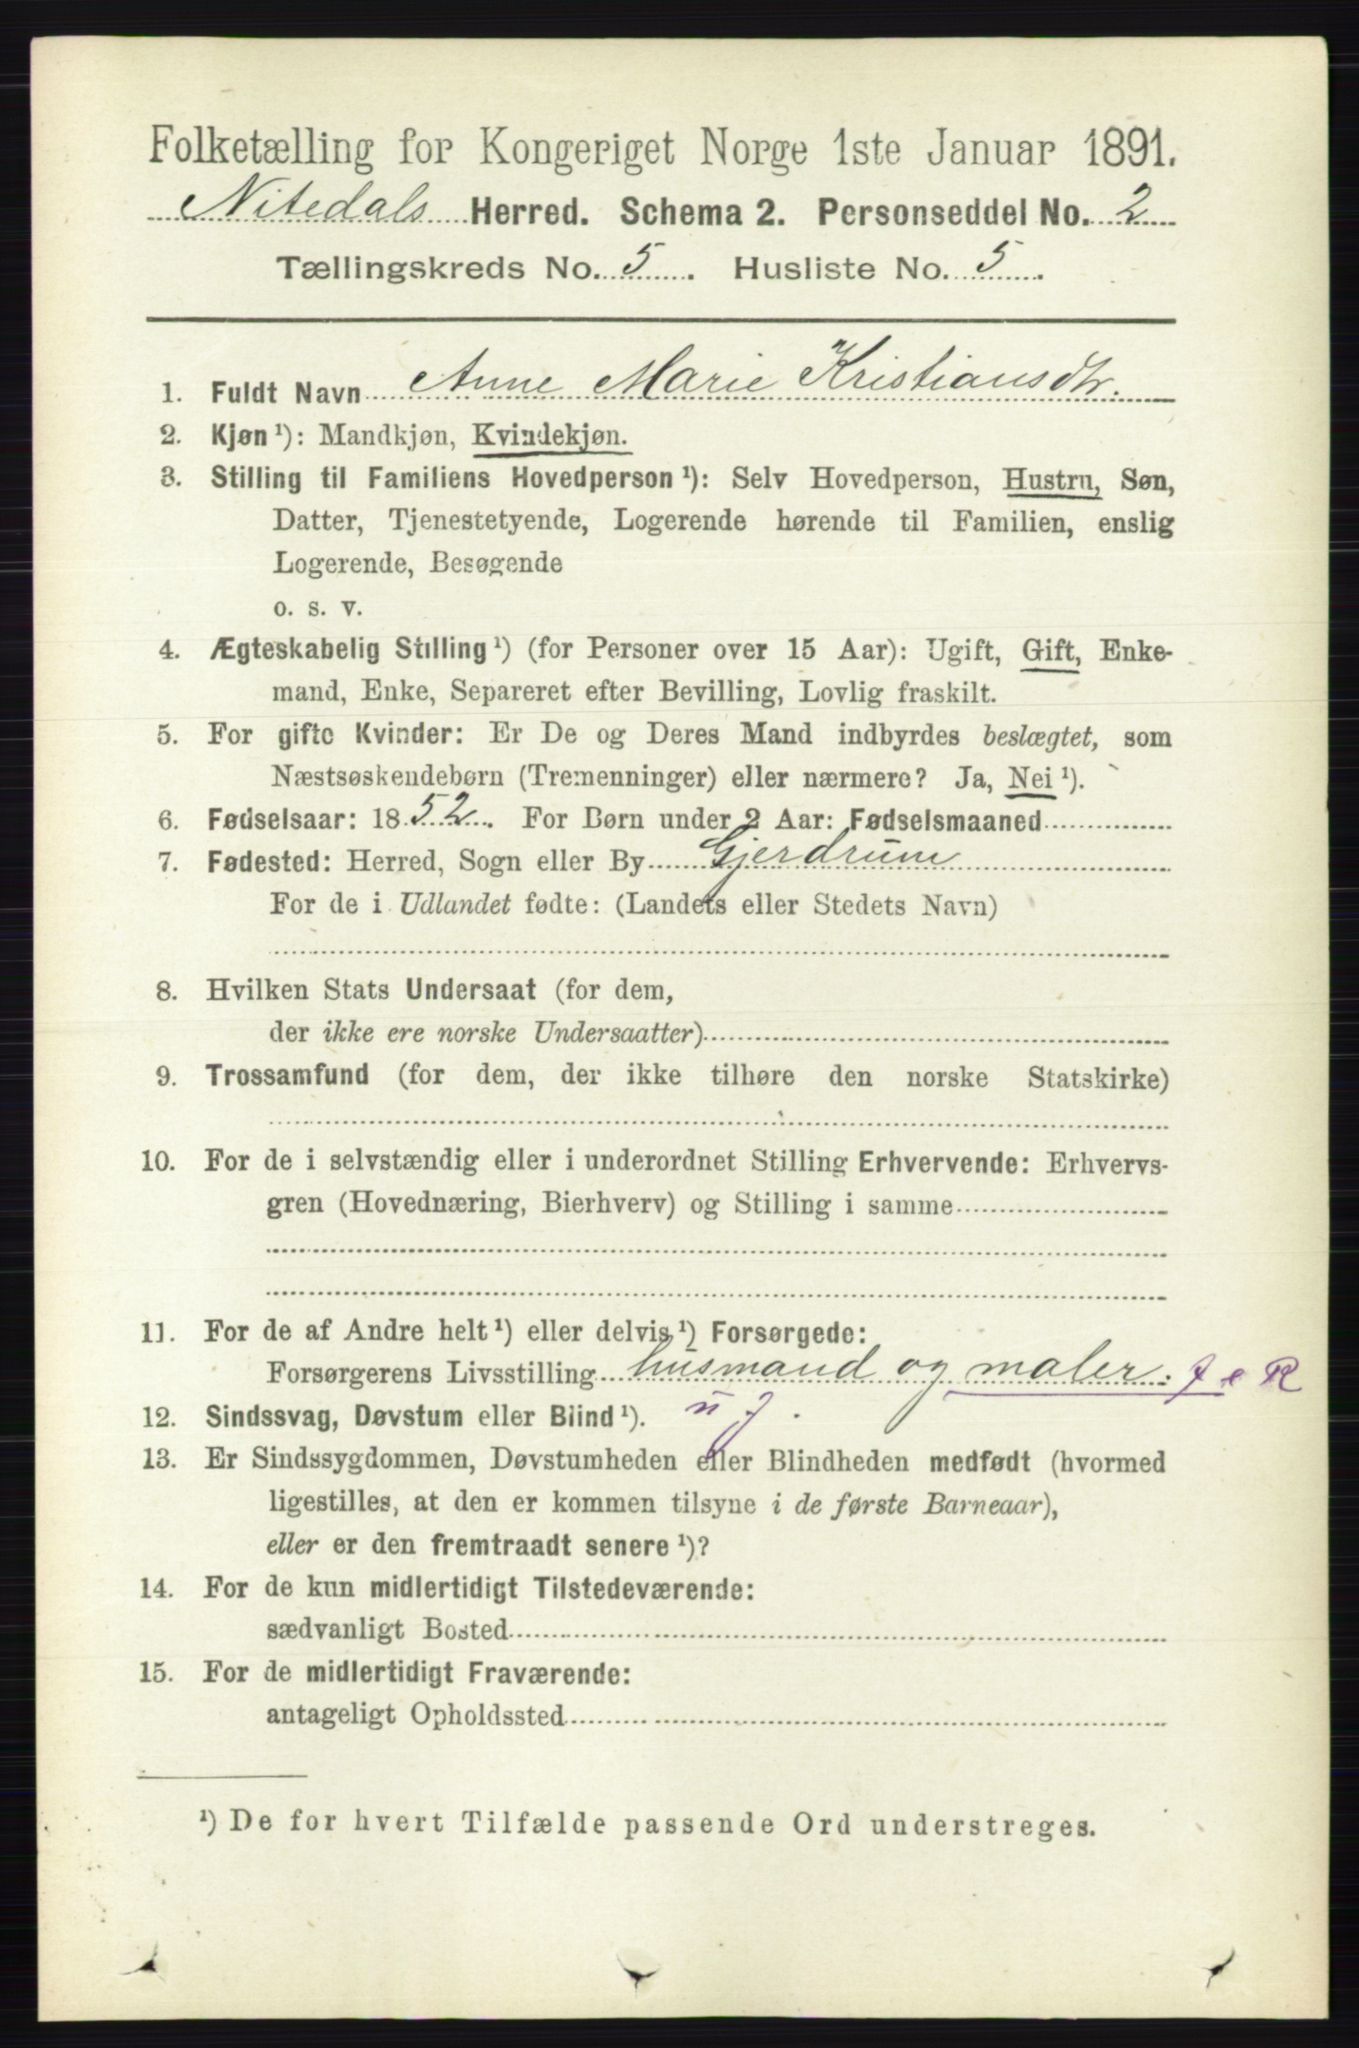 Folketælling for Kongeriget Norge 1ste Januar 1891.
Nitedals Herred. Schema 2. Personseddel No. 2
Tællingskreds No. 5. Husliste No. 5.
1. Fuldt Navn Anne Marie Kristiansdtr.
2. Kjøn ¹): Mandkjøn, Kvindekjøn.
3. Stilling til Familiens Hovedperson ¹): Selv Hovedperson, Hustru, Søn,
Datter, Tjenestetyende, Logerende hørende til Familien, enslig
Logerende, Besøgende
o. s. v.
4. Ægteskabelig Stilling ¹) (for Personer over 15 Aar): Ugift, Gift, Enke-
mand, Enke, Separeret efter Bevilling, Lovlig fraskilt.
5. For gifte Kvinder: Er De og Deres Mand indbyrdes beslægtet, som
Næstsøskendebørn (Tremenninger) eller nærmere? Ja, Nei ¹).
6. Fødselsaar: 1852. For Børn under 2 Aar: Fødselsmaaned
7. Fødested: Herred, Sogn eller By Gjerdrum
For de i Udlandet fødte: (Landets eller Stedets Navn)
8. Hvilken Stats Undersaat (for dem,
der ikke ere norske Undersaatter)
9. Trossamfund (for dem, der ikke tilhøre den norske Statskirke)
10. For de i selvstændig eller i underordnet Stilling Erhvervende: Erhvervs-
gren (Hovednæring, Bierhverv) og Stilling i samme
11. For de af Andre helt ¹) eller delvis ¹) Forsørgede:
Forsørgerens Livsstilling husmand og maler. f e R
12. Sindssvag, Døvstum eller Blind ¹).
13. Er Sindssygdommen, Døvstumheden eller Blindheden medfødt (hvormed
ligestilles, at den er kommen tilsyne i de første Barneaar),
eller er den fremtraadt senere ¹)?
14. For de kun midlertidigt Tilstedeværende:
sædvanligt Bosted
15. For de midlertidigt Fraværende:
antageligt Opholdssted
¹) De for hvert Tilfælde passende Ord understreges.